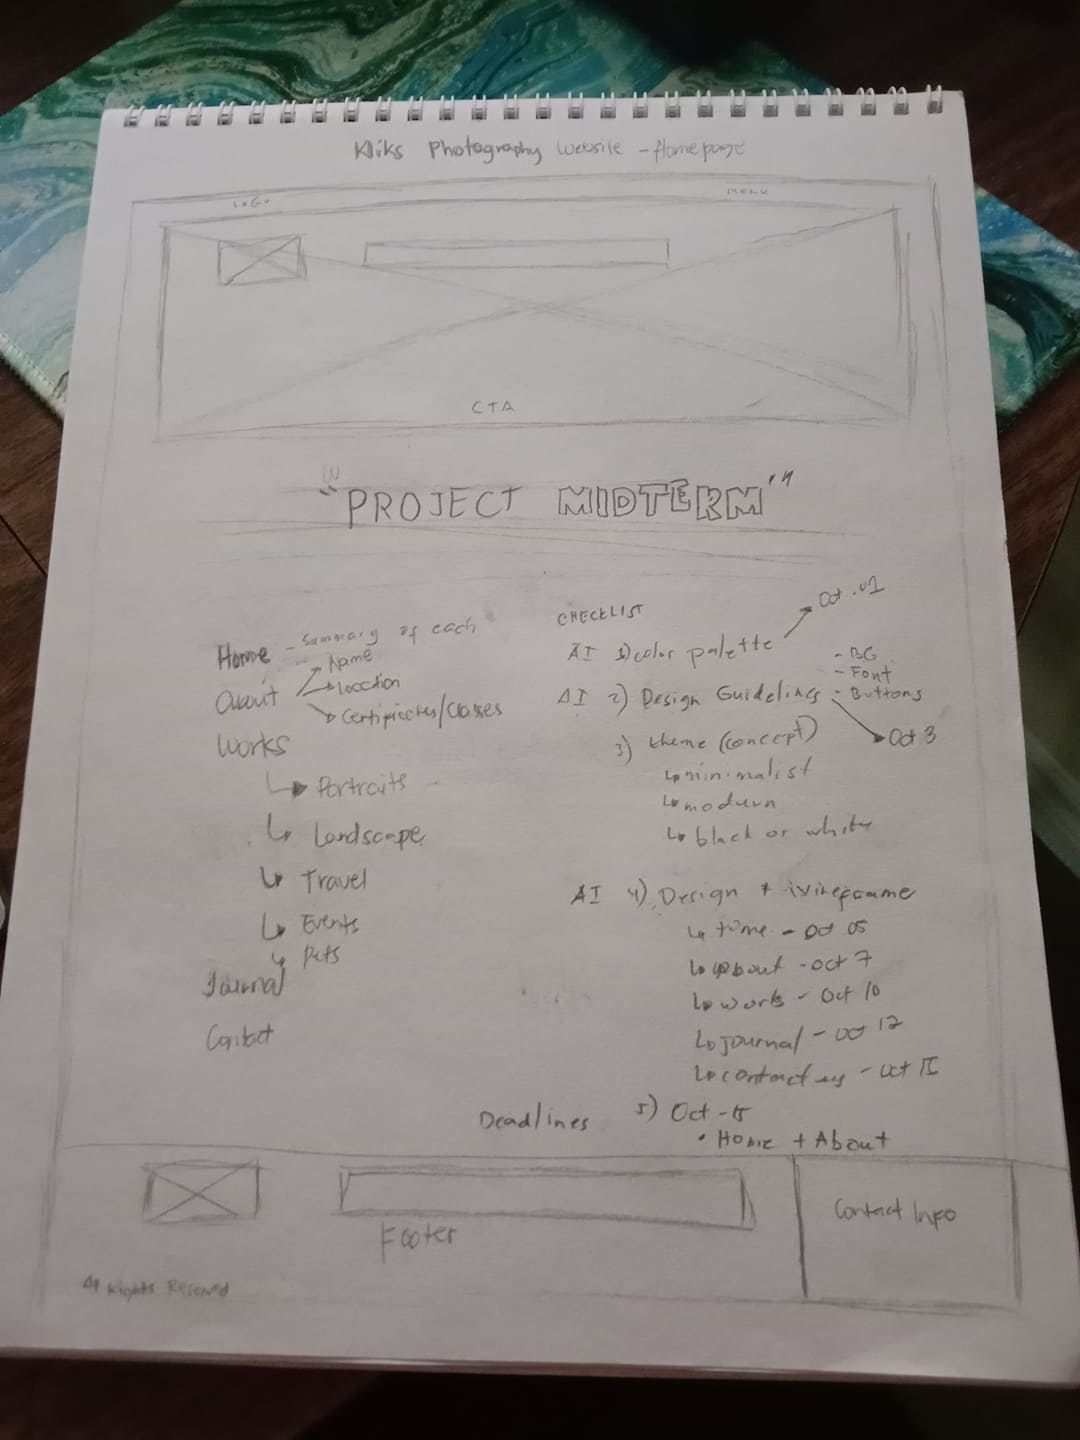 Kliks Photography Website - Homepage
LOGO
MENU
CTA
"PROJECT MIDTERM"
Home - Summary of each
About
Name
Location
Certificates/Classes
Works
Portraits
Landscape
Travel
Events
Pets
Journal
Contact
CHECKLIST
AI 1) color palette
Oct .01
AI 2) Design Guidelines
- BG
- Font
- Buttons
Oct 3
3) theme (concept)
minimalist
modern
black or white
AI 4) Design + wireframe
home - oct 05
about - oct 7
works - Oct 10
journal - oct 12
contact - oct
Deadlines
5) Oct - 15
• Home + About
Footer
Contact Info
All Rights Reserved